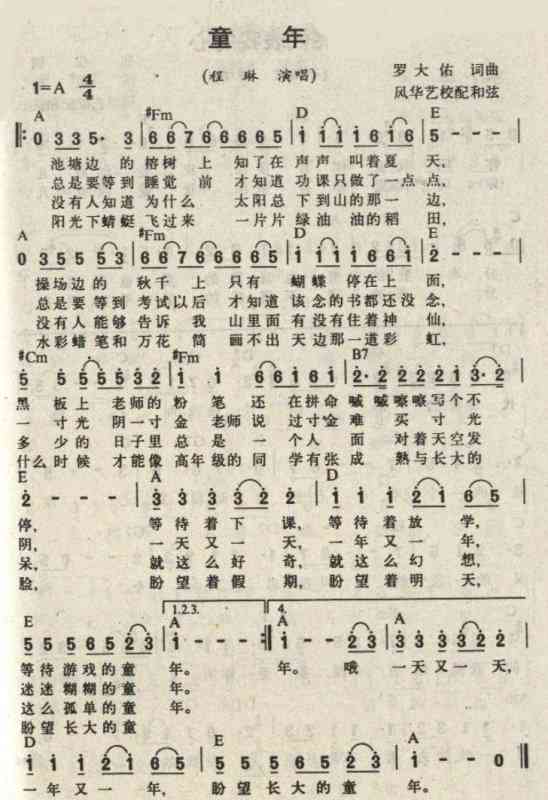 童 年
(程 琳 演唱)
罗 大 佑 词曲
1=A 4/4
风华艺校配和弦
A #Fm D E
0 3 3 5· 3 6 6 7 6 6 6 6 5 1 1 1 1 6 1 6 5 - - -
池塘边 的 榕树 上 知了在 声声 叫着夏 天,
总是要等到 睡觉 前 才知道 功课只做了一点 点,
没有人知道 为什么 太阳总 下到山的那一 边,
阳光下蜻蜓 飞过来 一片片 绿油 油的稻 田,
A #Fm D E
0 3 5 5 5 3 6 6 7 6 6 6 6 5 1 1 1 1 6 1 2 - - -
操场边的 秋千 上 只有 蝴蝶 停在上 面,
总是要等到 考试以后 才知道 该念的书都还没 念,
没有人能够 告诉 我 山里面 有没有住着神 仙,
水彩蜡笔和 万花 筒 画不出 天边那一道彩 虹,
#Cm #Fm B7
5 5 5 5 5 3 2 1· 1 6 6 1 6 1 2· 2 2 2 2 1 3· 2
黑 板上 老师的 粉 笔 还 在拼命 嘁 嘁嚓嚓写个不
一 寸光 阴一寸 金 老师 说 过寸 金 难 买 寸 光
多 少的 日子里 总 是 一 个 人 面 对着天空发
什么时候 才能像 高年 级的 同 学有张 成 熟与长大的
E A D
2 - - - 3 3 3 3 2 2 1 1 1 2 1 6 5
停, 等 待 着 下 课, 等 待 着 放 学,
阴, 一 天 又 一 天, 一 年 又 一 年,
呆, 就 这 么 好 奇, 就 这 么 幻 想,
脸, 盼 望 着 假 期, 盼 望 着 明 天,
1.2.3. 4.
E A A A
5 5 5 5 6 5 2 3 1 - - - 1 - - 2 3 3 3 3 3 2 2
等待 游戏 的 童 年。 年。 哦 一 天 又 一 天,
迷迷 糊糊 的 童 年。
这么 孤单 的 童 年。
盼望 长大 的 童
D E A
1 1 1 2 1 6 5 5 5 5 5 6 5 2 3 1 - - 0
一 年 又 一 年, 盼 望 长大 的 童 年。